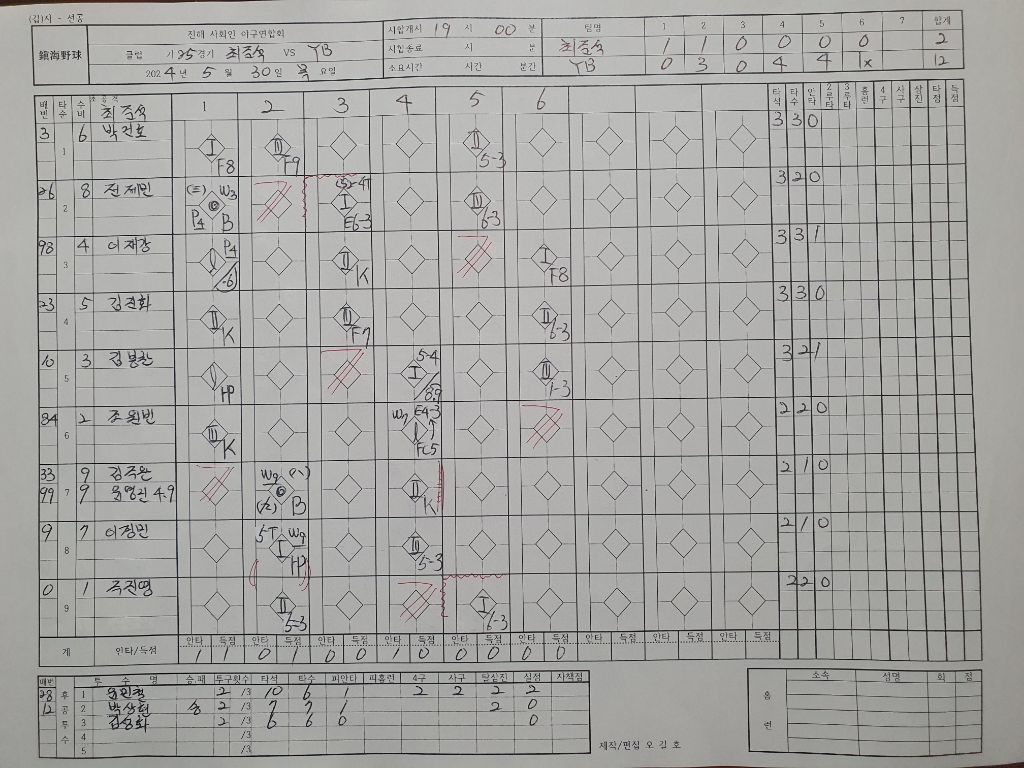 (갑)지 - 선공
鎭海野球
진해 사회인 야구연합회
클럽 기 25경기 최준석 VS YB
2024년 5월 30일 목요일
시합개시 19시 00분
시합종료 시 분
소요시간 시간 분간
팀명 1 2 3 4 5 6 7 합계
최준석 1 1 0 0 0 0 2
YB 0 3 0 4 4 1x 12
배번 타순 수비 최준석 1 2 3 4 5 6 타석 타수 안타 2루타 3루타 홈런 4구 사구 삼진 타점 득점
3 1 6 박건호 I F8 III F9 II 5-3 3 3 0
26 2 8 전제민 W3 P4 B I E6-3 III 6-3 3 2 0
98 3 4 이재강 P4 II K I F8 3 3 1
23 4 5 II K III F7 II 6-3 3 3 0
10 5 3 김봉찬 HP I 5-4 III 1-3 3 2 1
84 6 2 조원빈 III K E4-3 FC5 2 2 0
33 9 김주완 B II K 2 1 0
99 7 9 4.9
9 8 7 이정민 5T I HP III 5-3 2 1 0
0 9 1 II 5-3 I 6-3 2 2 0
계 안타/득점 안타 득점 안타 득점 안타 득점 안타 득점 안타 득점 안타 득점 안타 득점 안타 득점 안타 득점
1 1 0 1 0 0 1 0 0 0 0 0
배번 투 수 명 승 패 투구횟수 타석 타수 피안타 피홈런 4구 사구 탈삼진 실점 자책점
후공투수
28 1 2 /3 10 6 1 2 2 2 2
12 2 승 2 /3 7 7 1 2 0
3 김상화 2 /3 6 6 0 0
4 /3
5 /3
홈런 소속 성명 회 점
제작/편집 오 길 호